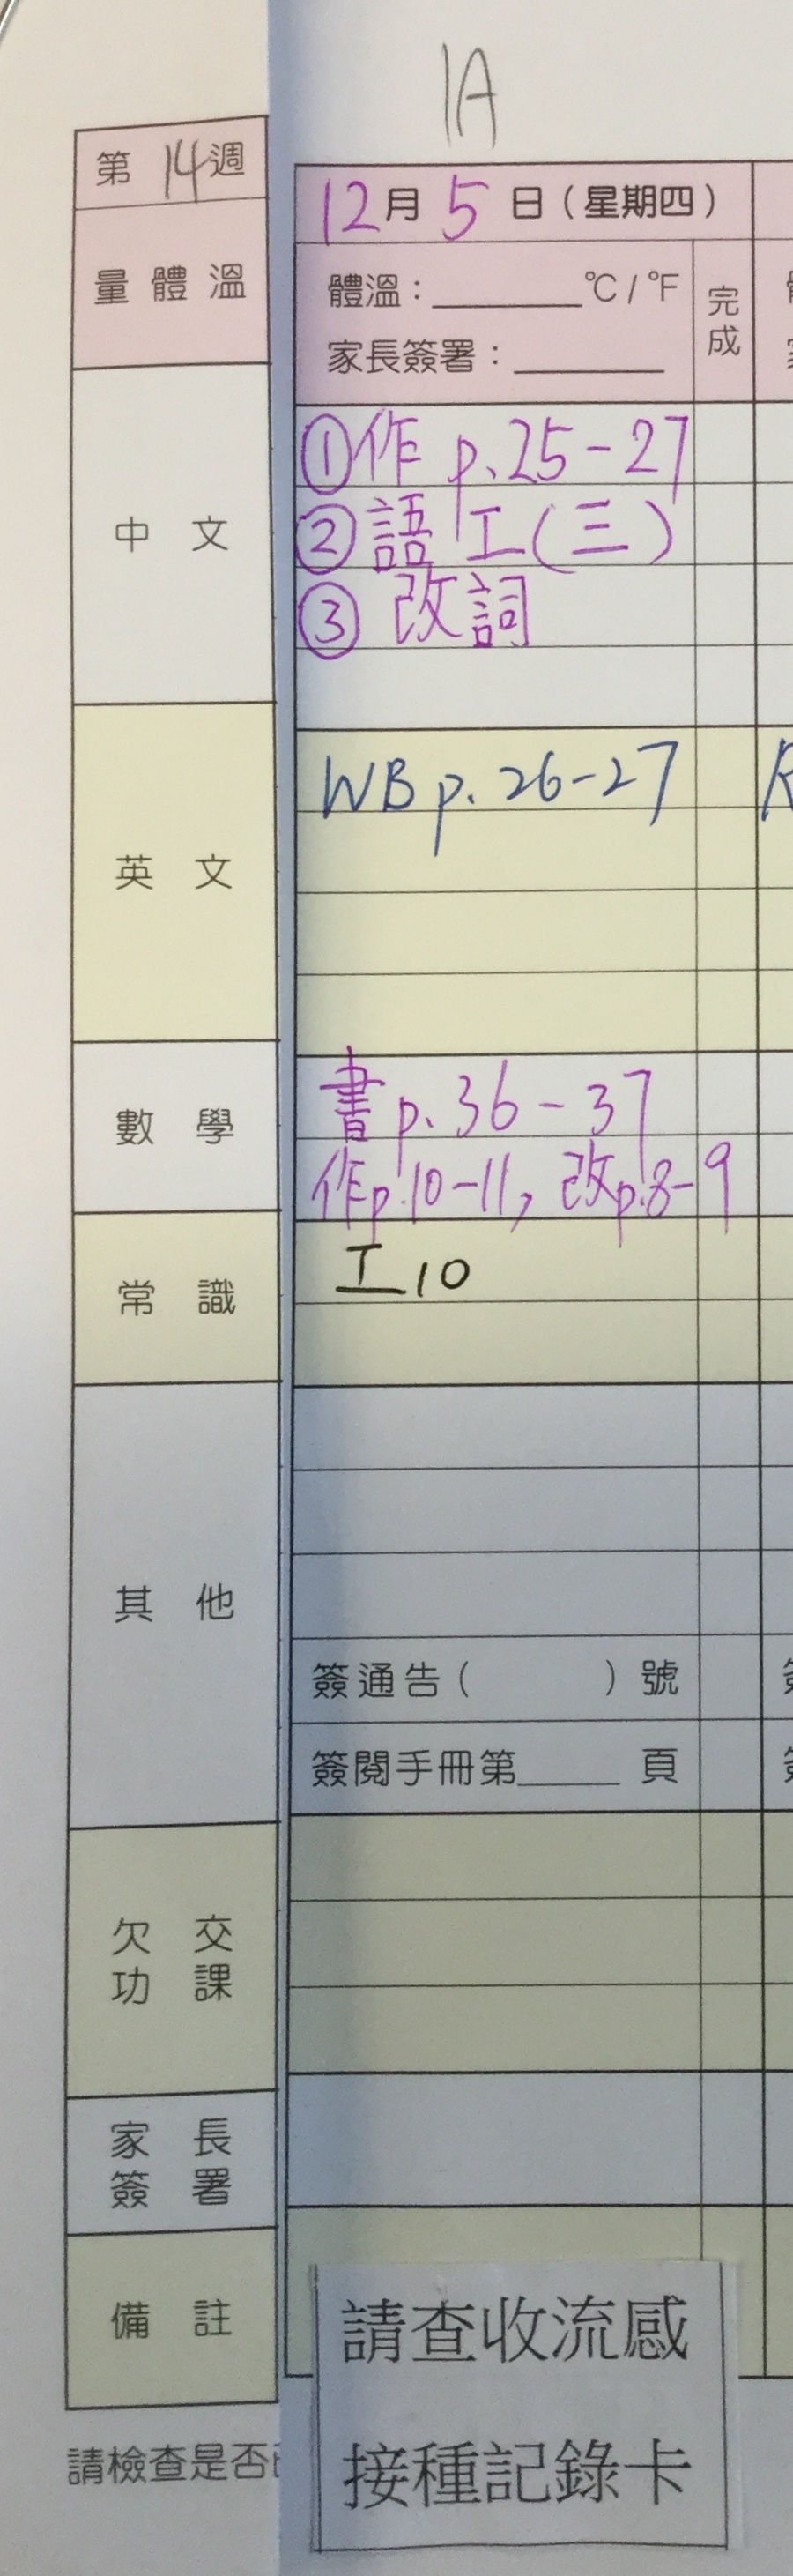 1A
第14週
12月5日(星期四)
量體溫
體溫:______°C/°F
完成
家長簽署:______
中文
①作 p.25-27
②語工(三)
③改詞
英文
WB p.26-27
數學
書p.36-37
作p.10-11, 改p.8-9
常識
工10
其他
簽通告( )號
簽閱手冊第____頁
欠交
功課
家長
簽署
備註
請查收流感
接種記錄卡
請檢查是否